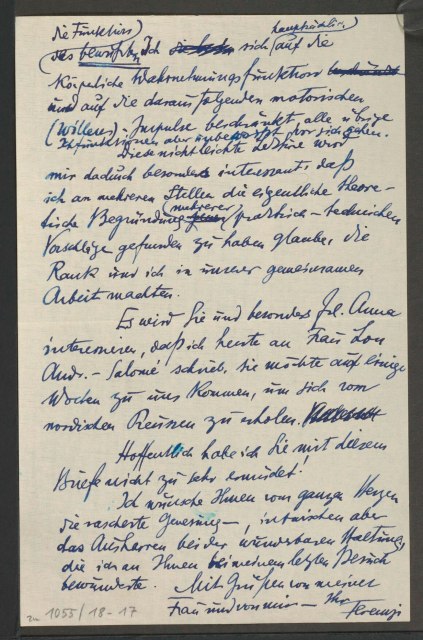 die Funktion)
hauptsächlich)
(das bewußte Ich sich (auf die
Körperliche Wahrnehmungsfunktion
und auf die daraus folgenden motorischen
(Willens)-Impulse beschränkt, alle übrige
Ichfunktionen aber unbewußt vor sich gehen.
Diese nicht leichte Lektüre wird
mir dadurch besonders interessant, daß
ich an mehreren Stellen die eigentliche theore-
tische Begründung mehrerer praktisch-technischen
Vorschläge gefunden zu haben glaube, die
Rank und ich in unserer gemeinsamen
Arbeit machten.
Es wird Sie und besonders Frl. Anna
interessieren, daß ich heute an Frau Lou
Andr.-Salomé schrieb, sie möchte auf einige
Wochen zu uns kommen, um sich vom
nordischen Reussen zu erholen.
Hoffentlich habe ich Sie mit diesem
Briefe nicht zu sehr ermüdet!
Ich wünsche Ihnen vom ganzen Herzen
die rascheste Genesung –, inzwischen aber
das Ausharren bei der wunderbaren Haltung,
die ich an Ihnen bei meinem letzten Besuch
bewunderte. Mit Grüßen von meiner
Frau und von mir – Ihr
Ferenczi
zu 1055/18-17